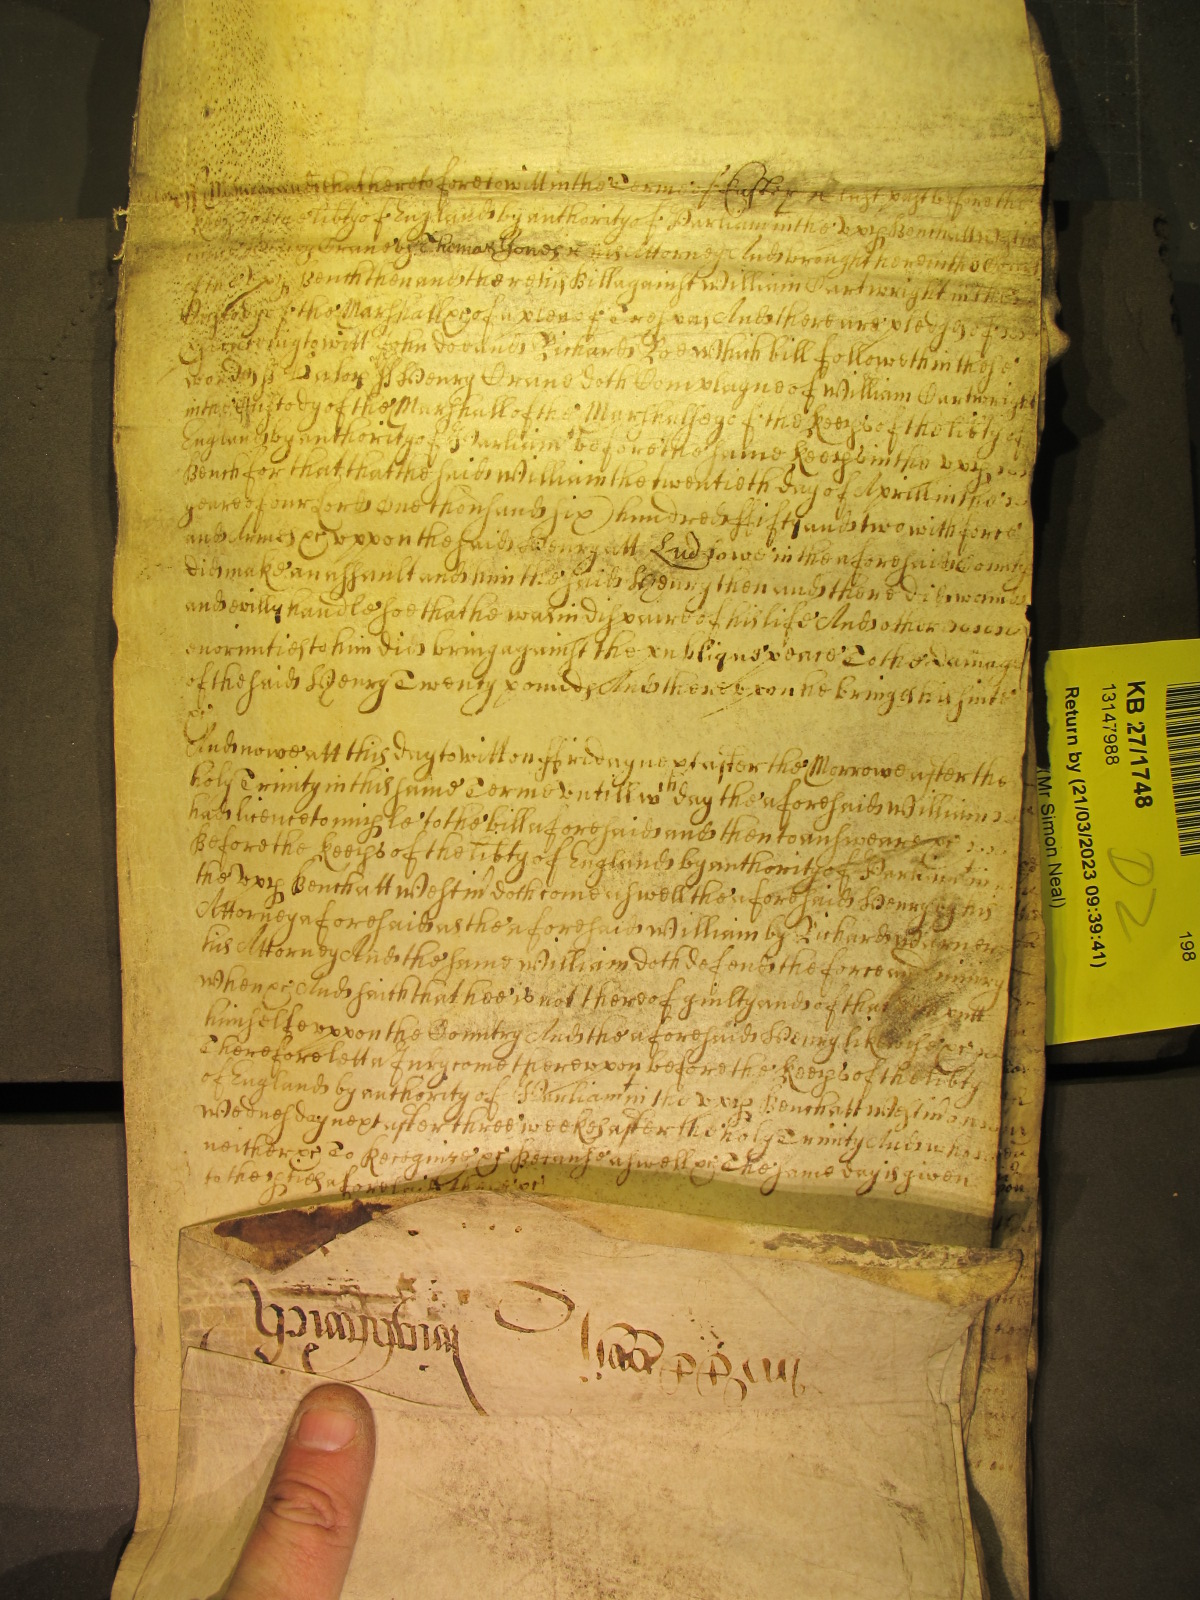 Memorand that heretofore to witt in the Terme of Easter last past before the
Keeps of the libty of England by authority of Parliam in the vpp Bench att Westm
came Henry Crane by Thomas Jones his Attorney And brought here in the Court
of the vpp Bench then and there his Bill against William Cartwright in the
Custody of the Marshall &c of a plea of Trespas And there are pledges of
psecuting to witt John doe and Richard Roe Which bill followeth in these
words ss Salop ss Henry Crane doth Complayne of William Cartwright
in the Custody of the Marshall of the Marshalsey of the Keeps of the libty of
England by authority of Parliam before the same Keeps in the vpp
Bench for that that the said William the twentieth day of Aprill in the
yeare of our Lord One thousand six hundred ffifty and two with force
and Armes &c vppon the said Henry att Ludlowe in the aforesaid County
did make an assault and him the said Henry then and there did wound
and evilly handle soe that he was in dispaire of his life And other
enormities to him did bring against the publique peace To the damage
of the said Henry Twenty pounds And therevpon he brings his suite
&c
And nowe att this day to witt on ffriday next after the Morrowe after the
holy Trinity in this same Terme vntill wch day the aforesaid William
had licence to imple to the bill aforesaid and then to answeare &c
Before the Keeps of the libty of England by authority of Parliam in
the vpp Bench att Westm doth come aswell the aforesaid Henry by his
Attorney aforesaid as the aforesaid William by Richard
his Attorney And the same William doth defend the force and iniury
when &c And saith that hee is not thereof guilty and of that putt
himselfe vppon the Country And the aforesaid Henry likewise &c
Therefore lett a Jury come therevpon before the Keeps of the libty
of England by authority of Parliam in the vpp Bench att Westm on
Wednesday next after three weekes after the holy Trinity And who
neither &c To Recognize &c Because aswell &c The same day is given
to the pties aforesaid there &c
KB 27/1748
13147988
Return by (21/03/2023 09:39:41)
(Mr Simon Neal)
198
D2